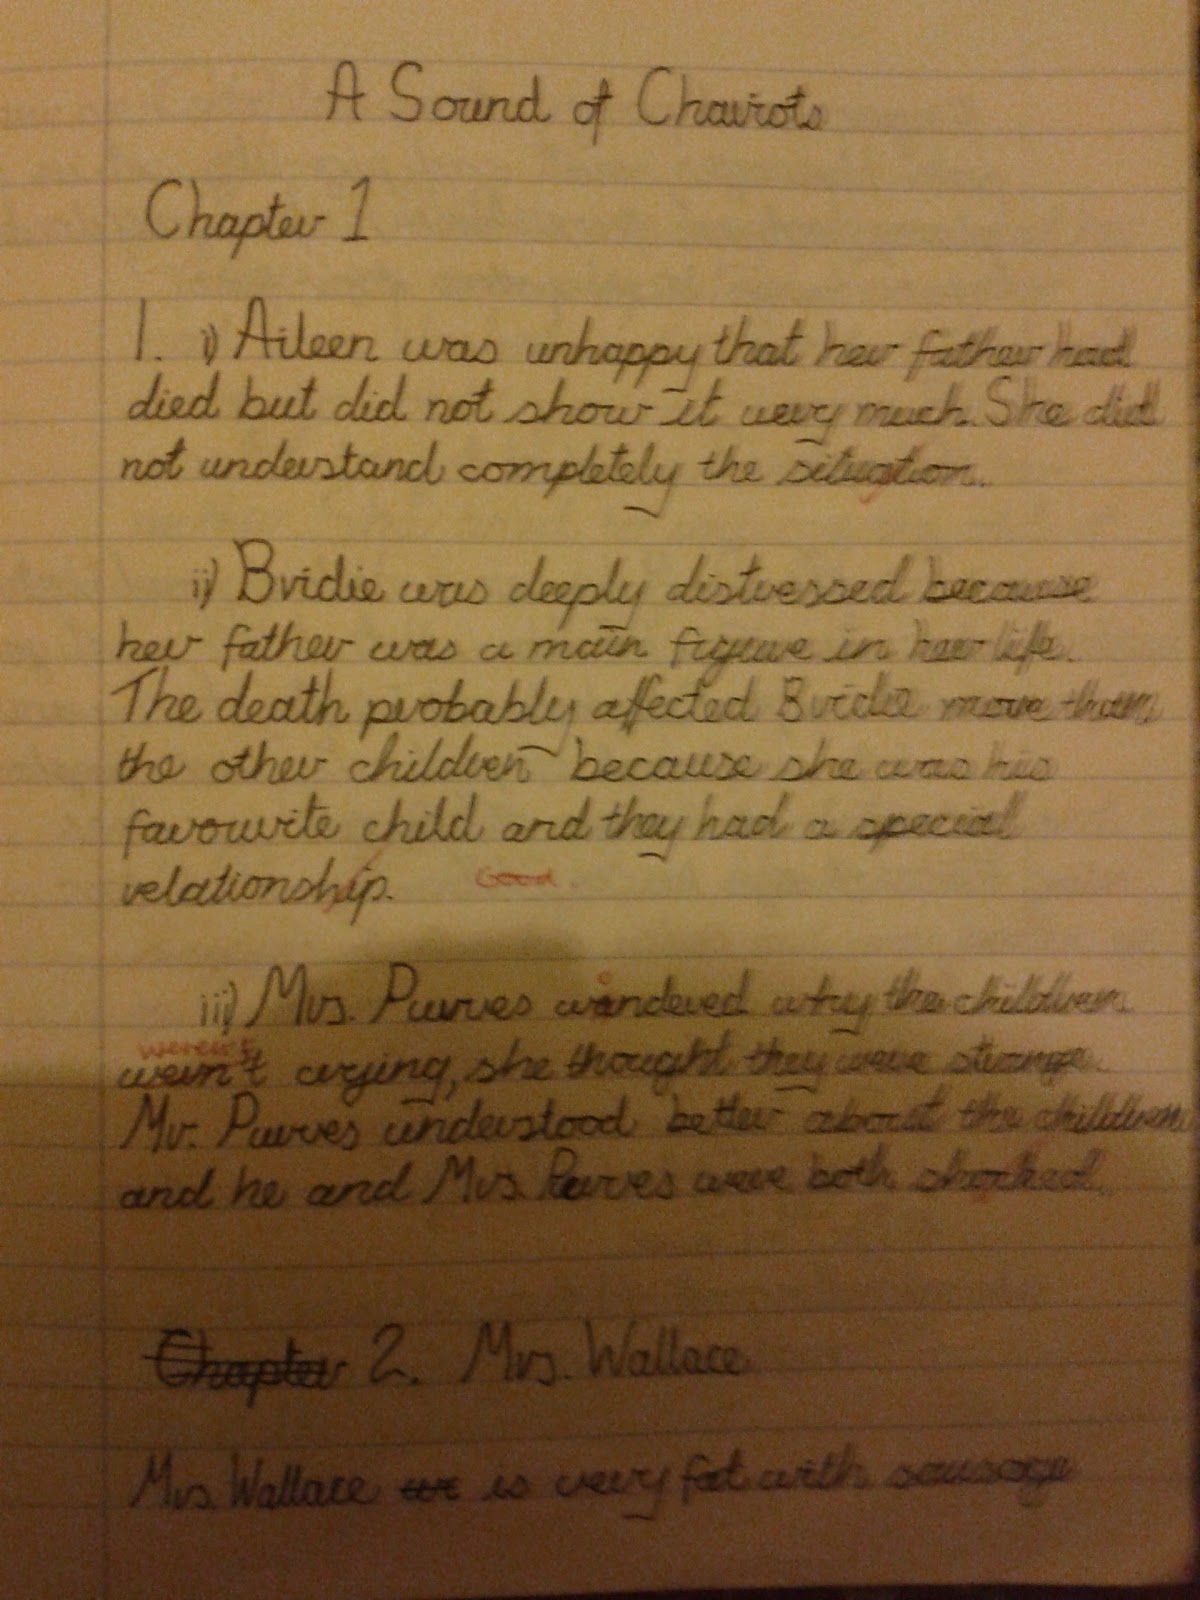 A Sound of Chariots
Chapter 1
1. i) Aileen was unhappy that her father had
died but did not show it very much. She did
not understand completely the situation.
ii) Bridie was deeply distressed because
her father was a main figure in her life.
The death probably affected Bridie more than
the other children because she was his
favourite child and they had a special
relationship. Good.
iii) Mrs. Purves wondered why the children
weren't
wern't crying, she thought they were strange.
Mr. Purves understood better about the children
and he and Mrs. Purves were both shocked.
Chapter 2. Mrs. Wallace
Mrs. Wallace is very fat with sausage